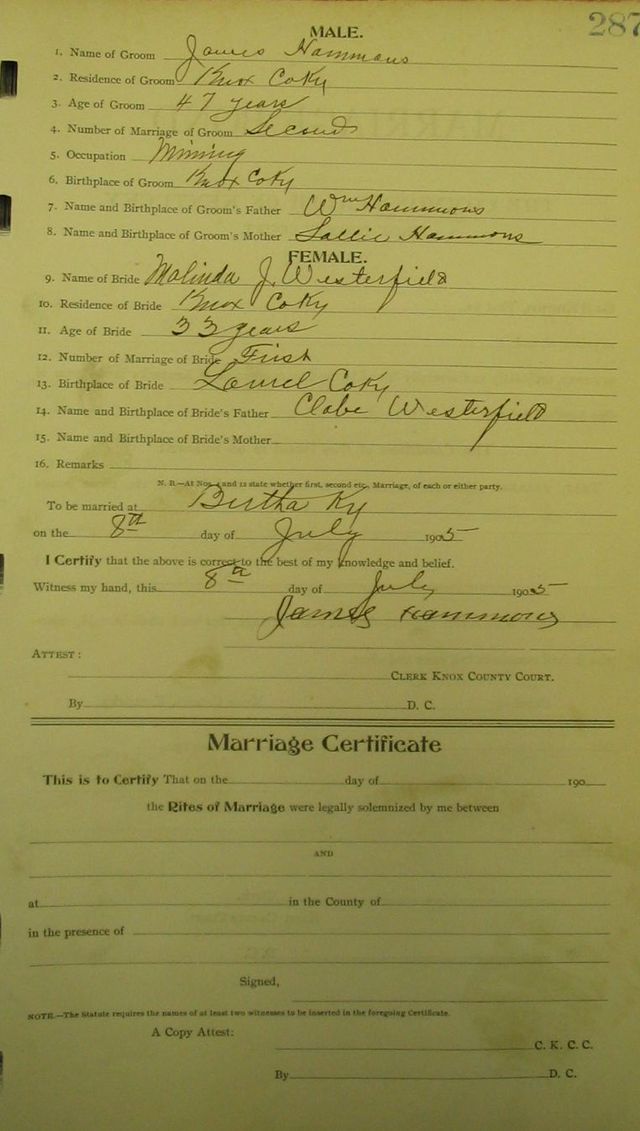 287
MALE.
1. Name of Groom James Hammons
2. Residence of Groom Knox Co Ky
3. Age of Groom 47 years
4. Number of Marriage of Groom Second
5. Occupation Mining
6. Birthplace of Groom Knox Co Ky
7. Name and Birthplace of Groom's Father Wm Hammons
8. Name and Birthplace of Groom's Mother Sallie Hammons
FEMALE.
9. Name of Bride Malinda J. Westerfield
10. Residence of Bride Knox Co Ky
11. Age of Bride 33 years
12. Number of Marriage of Bride First
13. Birthplace of Bride Laurel Co Ky
14. Name and Birthplace of Bride's Father Clabe Westerfield
15. Name and Birthplace of Bride's Mother
16. Remarks
N. B.—At Nos. 4 and 12 state whether first, second etc., Marriage, of each or either party.
To be married at Bertha Ky
on the 8th day of July 1905
I Certify that the above is correct to the best of my knowledge and belief.
Witness my hand, this 8th day of July 1905
James Hammons
ATTEST:
CLERK KNOX COUNTY COURT.
By D. C.
Marriage Certificate
This is to Certify That on the day of 190
the Rites of Marriage were legally solemnized by me between
AND
at in the County of
in the presence of
Signed,
NOTE.—The Statute requires the names of at least two witnesses to be inserted in the foregoing Certificate.
A Copy Attest:
C. K. C. C.
By D. C.